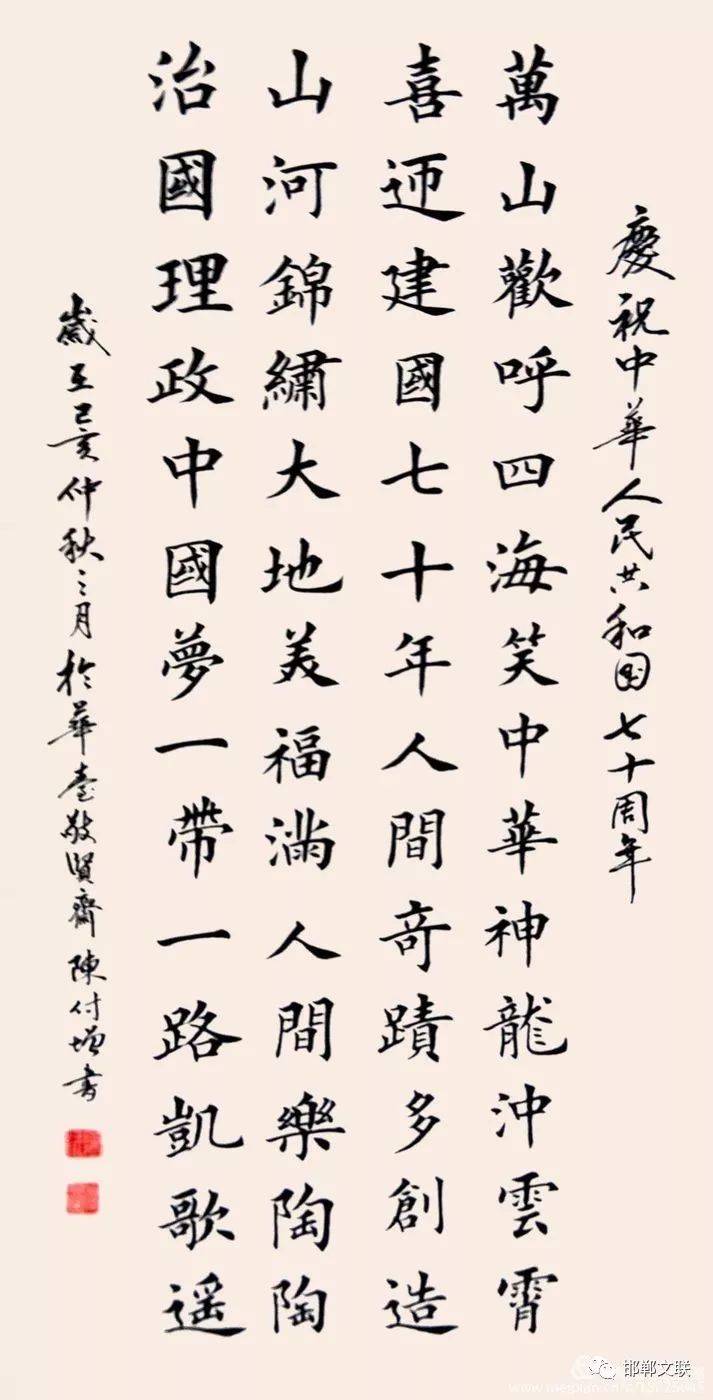 慶祝中華人民共和国七十周年
萬山歡呼四海笑中華神龍沖雲霄
喜迎建國七十年人間奇蹟多創造
山河錦繡大地美福滿人間樂陶陶
治國理政中國夢一帶一路凱歌遥
歲在己亥仲秋之月於華臺敬賢齋陳付增书
邯郸文联